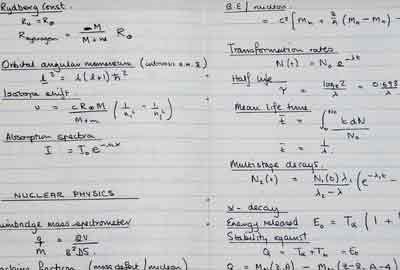 Rydberg Const.
R₀ = R∞
R_Hydrogen = M / M+m R∞
Orbital angular momentum
l² = l(l+1)ħ²
Isotope shift.
υ = cR∞M / M+m (1/n₁² - 1/n₂²)
Absorption spectra
I = I₀e^-nαx
NUCLEAR PHYSICS
mass spectrometer
q/m = 2V / B²DS
fraction (mass defect / nucleon)
B.E / nucleon
= c² [Mn + z/A (MH - Mn) -
Transformation rates
N(t) = N₀ e^-λt
Half life
τ = loge2 / λ = 0.693 / λ
Mean life time
t̄ = ∫₀^N₀ t dN / N₀
t̄ = 1/λ
Multistage decays.
N₂(t) = N₁(0) λ₁ / λ₂ - λ₁ (e^-λ₁t -
α - decay
Energy released E₀ = Tα (1 +
Stability against
Q = Tα + Tb = E₀
Q = M (Z,A) - M (Z-2, A-4)